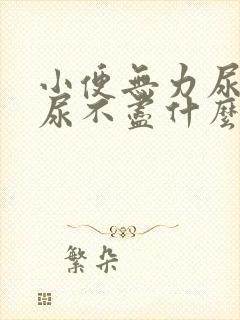 小便無力尿
尿不盡什麼
繁朵